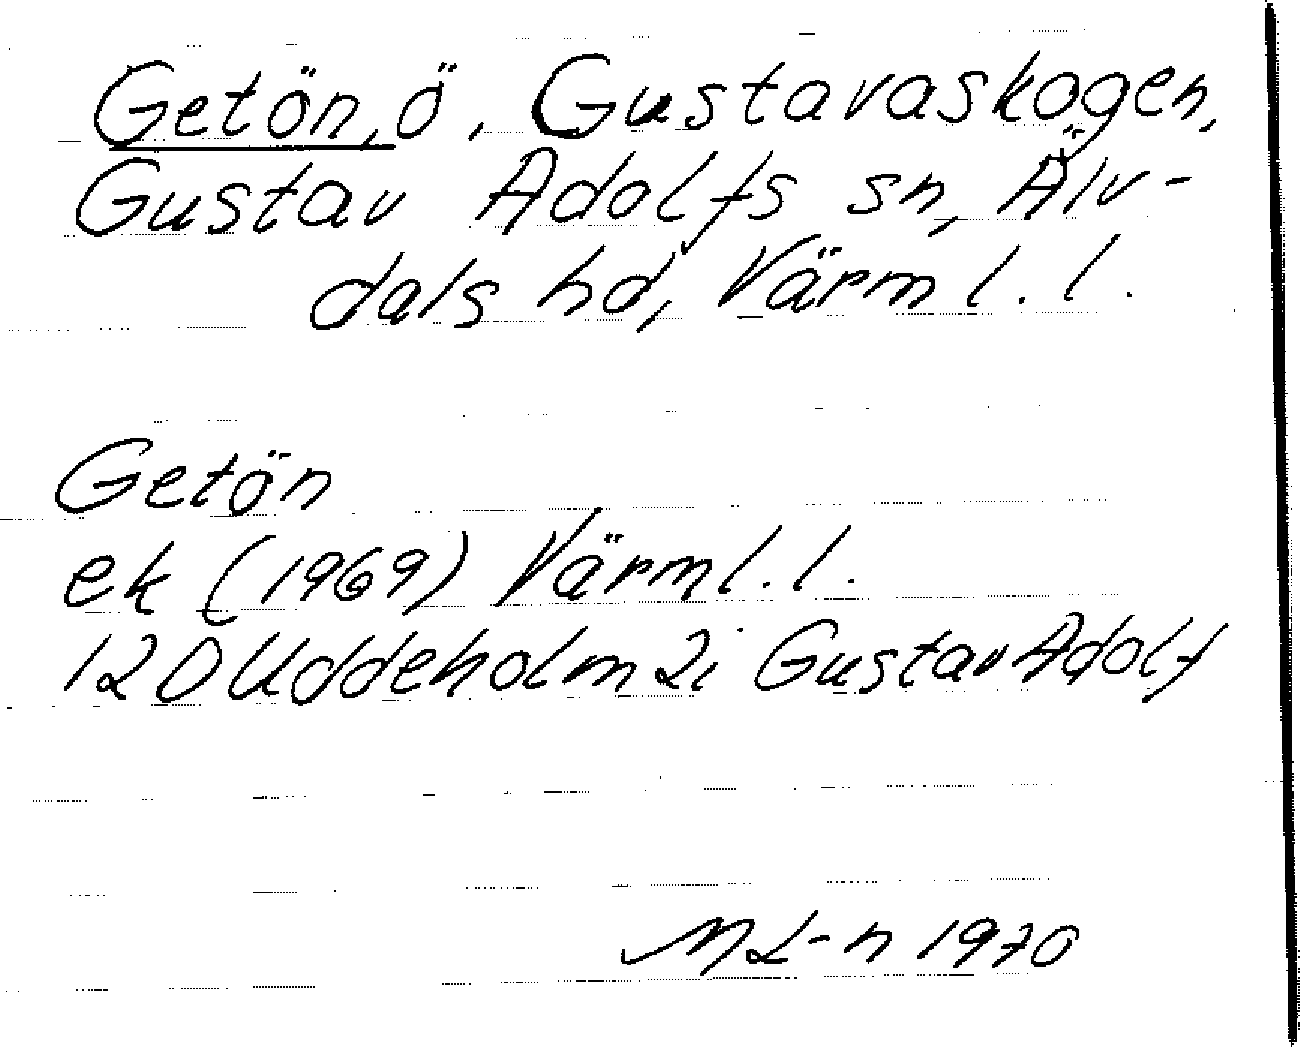 Getön, ö, Gustavaskogen,
Gustav Adolfs sn, Älv-
dals hd, Värml. l.
Getön
ek (1969) Värml. l.
12D Uddeholm 2i Gustav Adolf
ML-n 1970